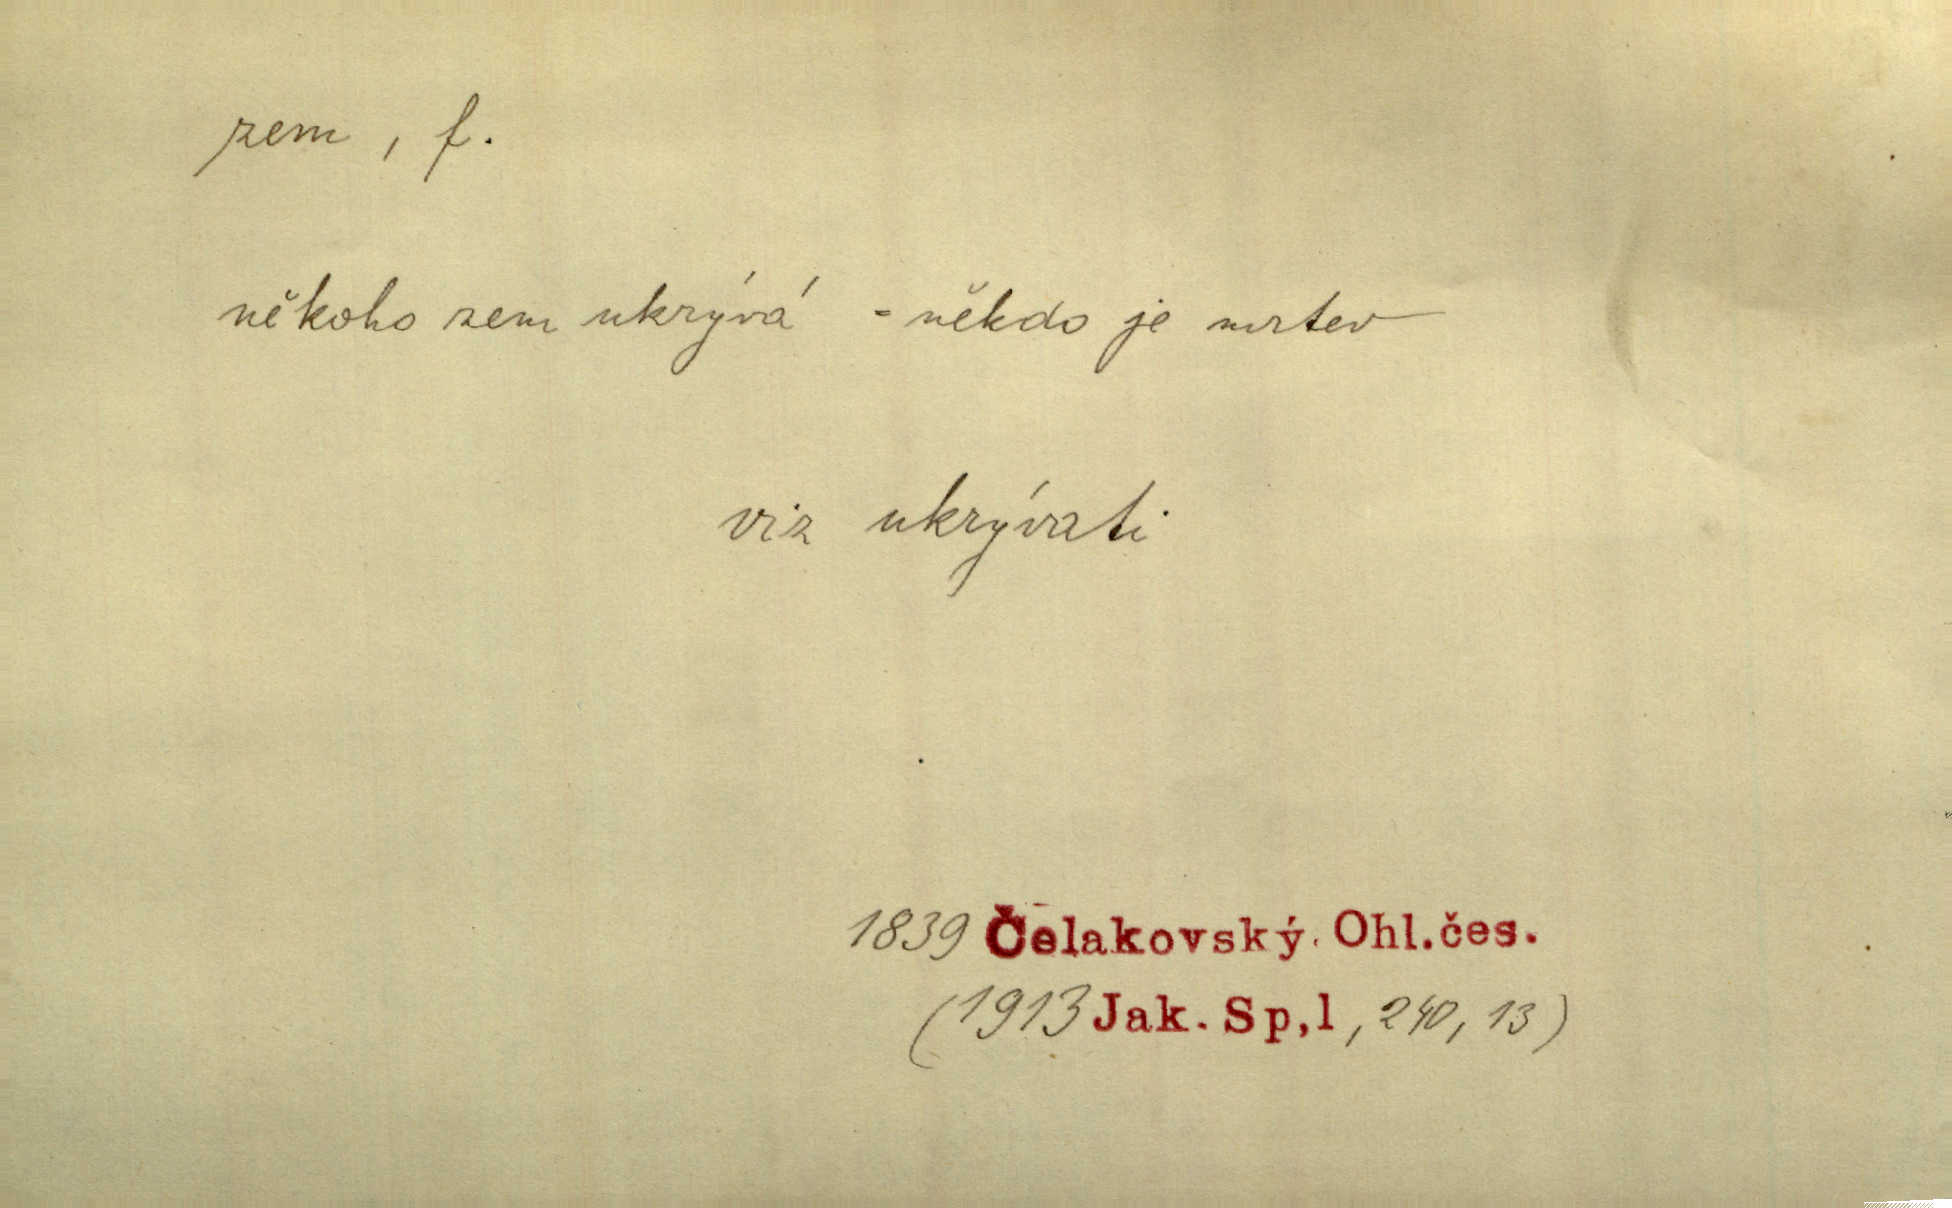 zem, f.
někoho zem ukrývá = někdo je mrtev
viz ukrývati
1839 Čelakovský. Ohl.čes.
(1913 Jak. Sp,1, 240, 13)